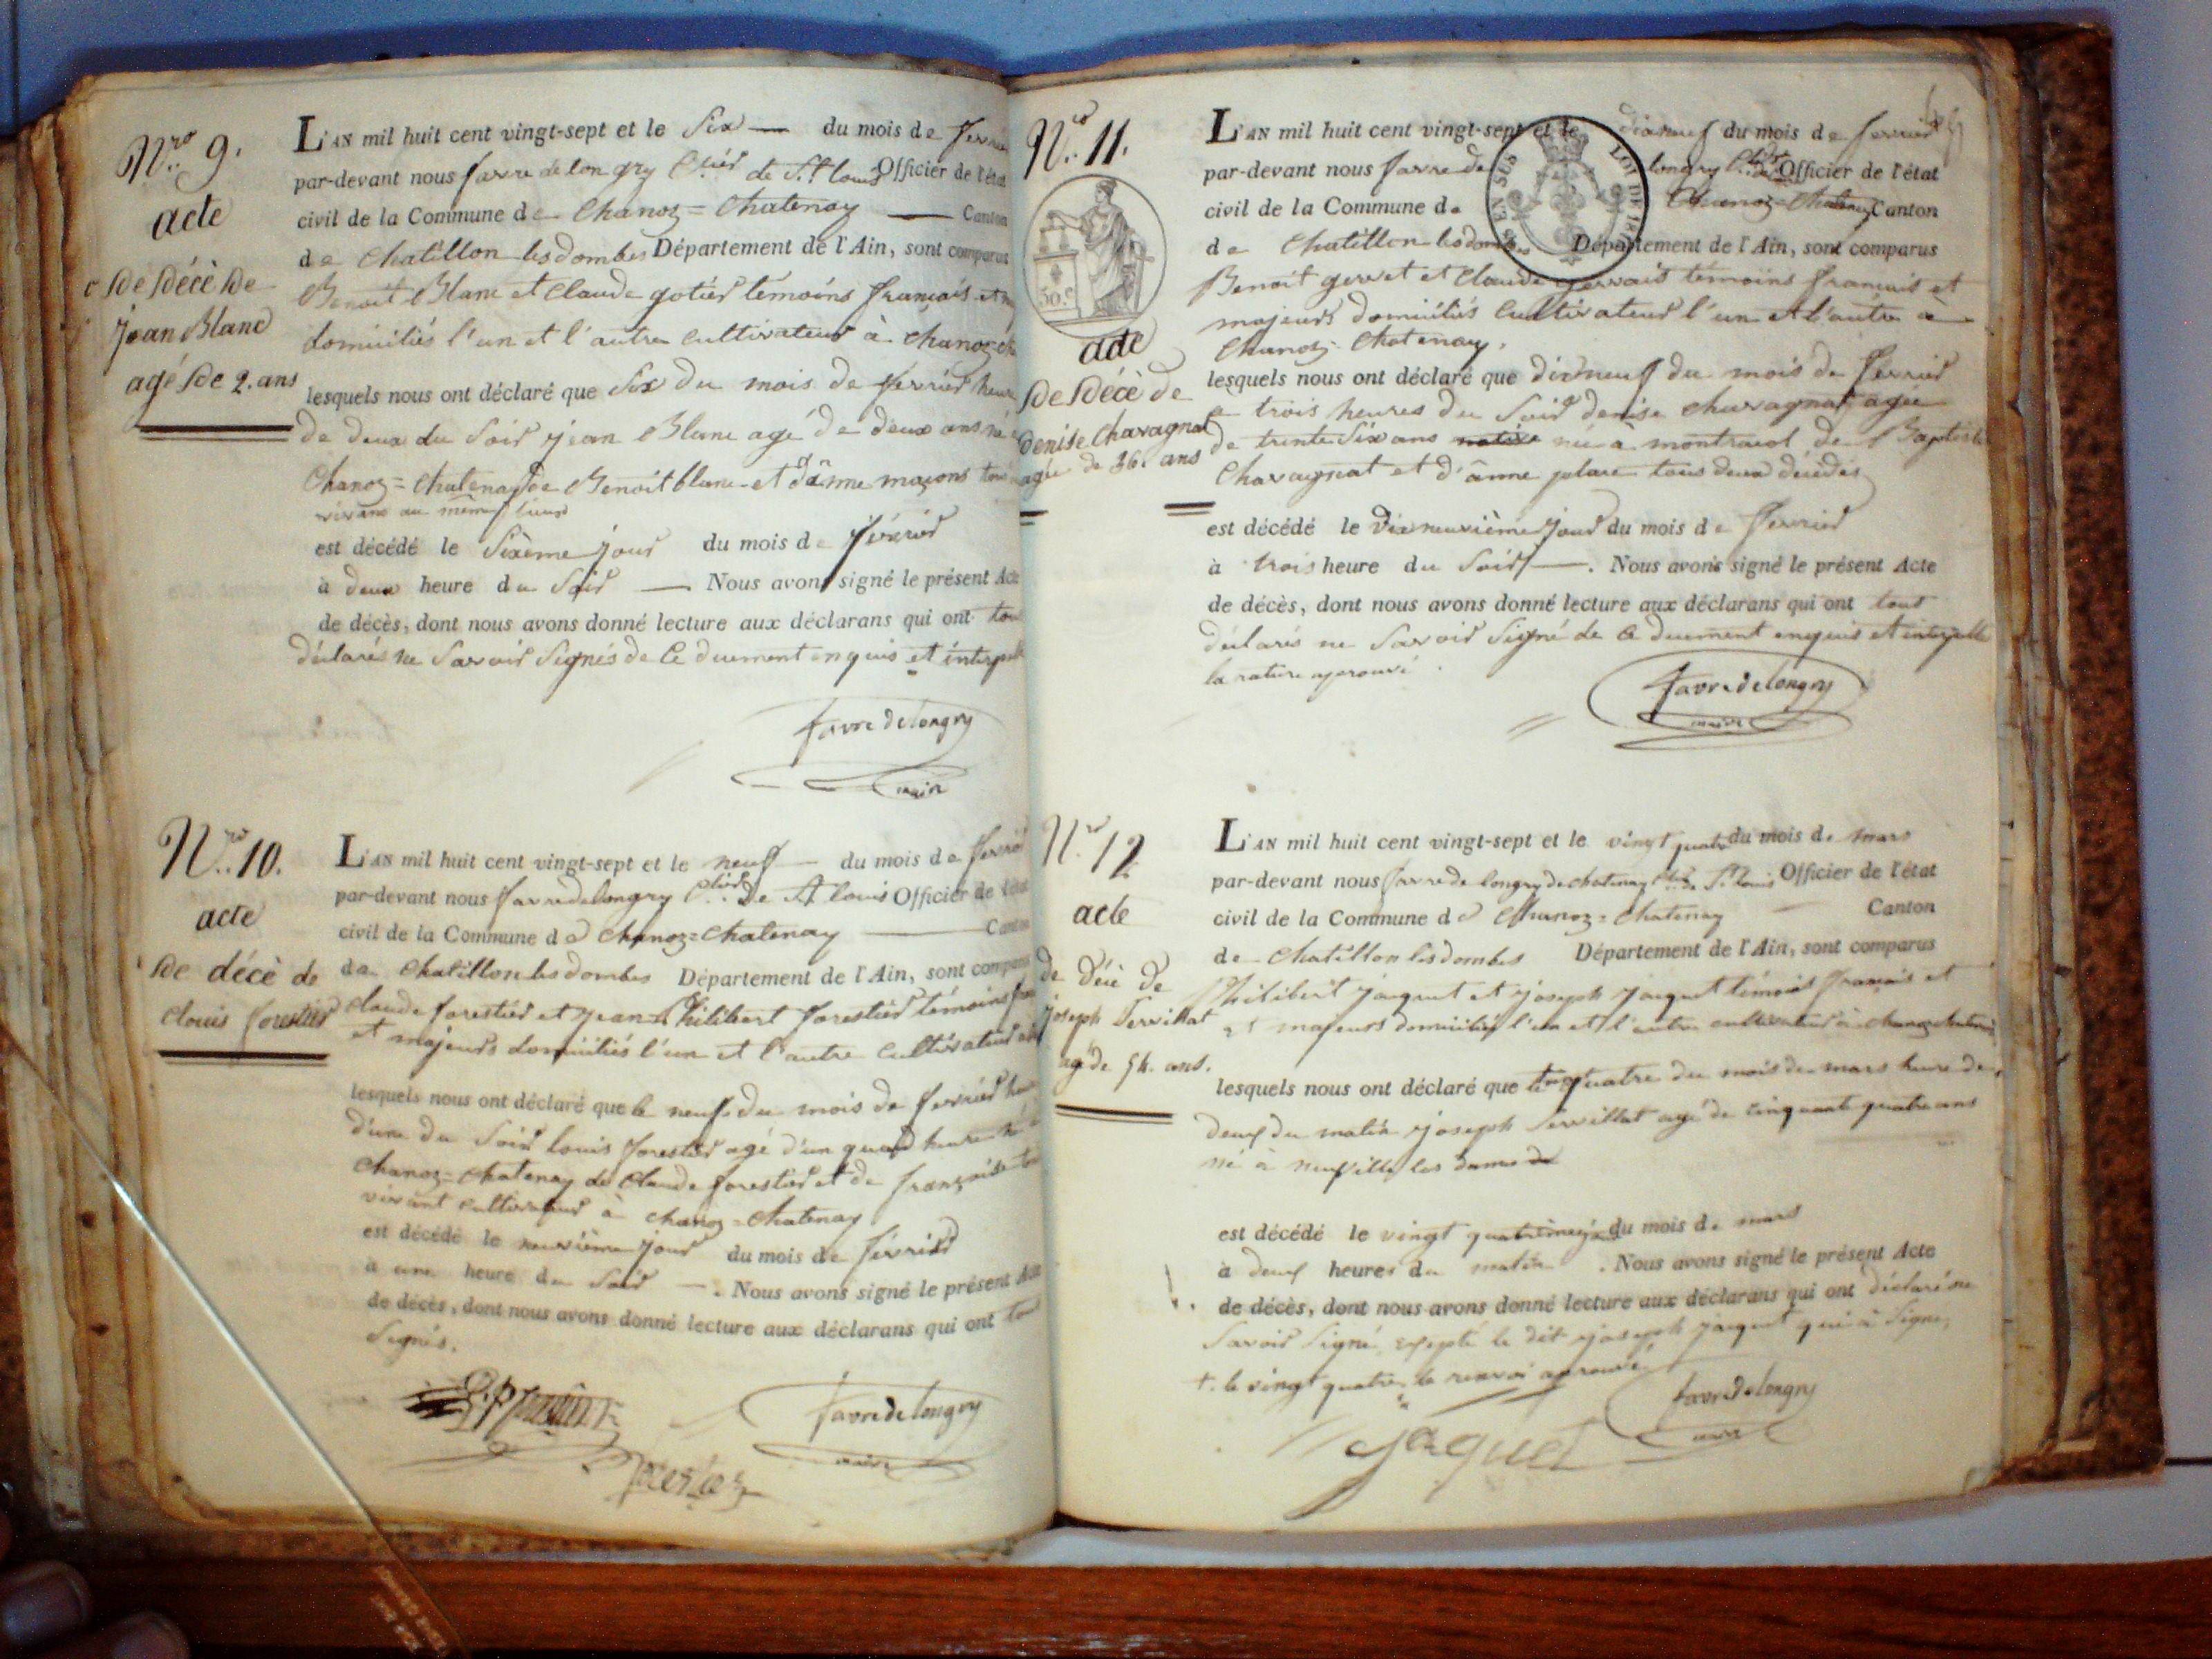 Nro 9.
acte
de décè de
jean Blanc
agé de 2. ans
L'AN mil huit cent vingt-sept et le Six — du mois de fevrier
par-devant nous favre de longry Clier de St louis Officier de l'état
civil de la Commune de Chanoz=Chatenay — Canton
de Chatillon lesdombes Département de l'Ain, sont comparus
Benoit Blanc et Claude gotier témoins français et
domiciliés l'un et l'autre cultivateurs à Chanoz
lesquels nous ont déclaré que Six du mois de fevrier heure
de deux du Soir jean Blanc agé de deux ans né
Chanoz=Chatenay de Benoit blanc et d'anne maçons
vivans au même lieux
est décédé le Sixème jour du mois de février
à deux heure du Soir — Nous avons signé le présent Acte
de décès, dont nous avons donné lecture aux déclarans qui ont tous
déclarés ne Savoir Signés de Ce duement enquis et interpellé
favre de longry
maire
Nro 10.
acte
de décè de
Louis forestier
L'AN mil huit cent vingt-sept et le neuf — du mois de fevrier
par-devant nous favre de longry Clier de St louis Officier de l'état
civil de la Commune de Chanoz=Chatenay — Canton
de Chatillon les dombes Département de l'Ain, sont comparus
Claude forestier et jean Philibert forestier témoins
et majeurs domiciliés l'un et l'autre Cultivateur
lesquels nous ont déclaré que le neuf du mois de fevrier
d'une du Soir louis forestier agé d'un quard heure né
Chanoz=Chatenay de Claude forestier et de françoise
vivant cultivateur à Chanoz=Chatenay
est décédé le neuvième jour du mois de février
à une heure du Soir —. Nous avons signé le présent Acte
de décès, dont nous avons donné lecture aux déclarans qui ont tous
Signés.
favre de longry
maire
forestier
Nro 11.
50.c
acte
de décè de
denise Chavagnat
agée de 36. ans
EN SUS
LOI DE
L'AN mil huit cent vingt-sept et le dixneuf du mois de fevrier
par-devant nous favre de longry Officier de l'état
civil de la Commune de Chanoz=Chatenay Canton
de Chatillon lesdombes Département de l'Ain, sont comparus
Benoit gervet et Claude gervais témoins français et
majeurs domiciliés Cultivateur l'un et l'autre à
Chanoz=Chatenay.
lesquels nous ont déclaré que dixneuf du mois de fevrier
a trois heures du Soir denise Chavagnat agée
de trente Six ans née à montracol de Baptiste
Chavagnat et d'ânne place tous deux décédés
est décédé le dixneuvième jour du mois de fevrier
à trois heure du Soir —. Nous avons signé le présent Acte
de décès, dont nous avons donné lecture aux déclarans qui ont tous
déclarés ne Savoir Signé de Ce duement enquis et interpellé
la rature aprouvé.
favre de longry
maire
Nro 12
acte
de décè de
joseph Servillat
agé de 54. ans.
L'AN mil huit cent vingt-sept et le vingt quatre du mois de mars
par-devant nous favre de longry de chatenay de St louis Officier de l'état
civil de la Commune de Chanoz=Chatenay — Canton
de Chatillon les dombes Département de l'Ain, sont comparus
Philibert jaquet et joseph jaquet témoins français et
majeurs domiciliés l'un et l'autre cultivateur à chanoz chatenay
lesquels nous ont déclaré que quatre du mois de mars heure de
deux du matin joseph Servillat agé de cinquante quatre ans
né à neufville les dames
est décédé le vingt quatrième jour du mois de mars
à deux heures du matin. Nous avons signé le présent Acte
de décès, dont nous avons donné lecture aux déclarans qui ont déclaré ne
Savoir Signé, excepté le dit joseph jaquet qui à Signé,
t. le vingt quatre, le renvoi aprouvé
favre de longry
maire
jaquet